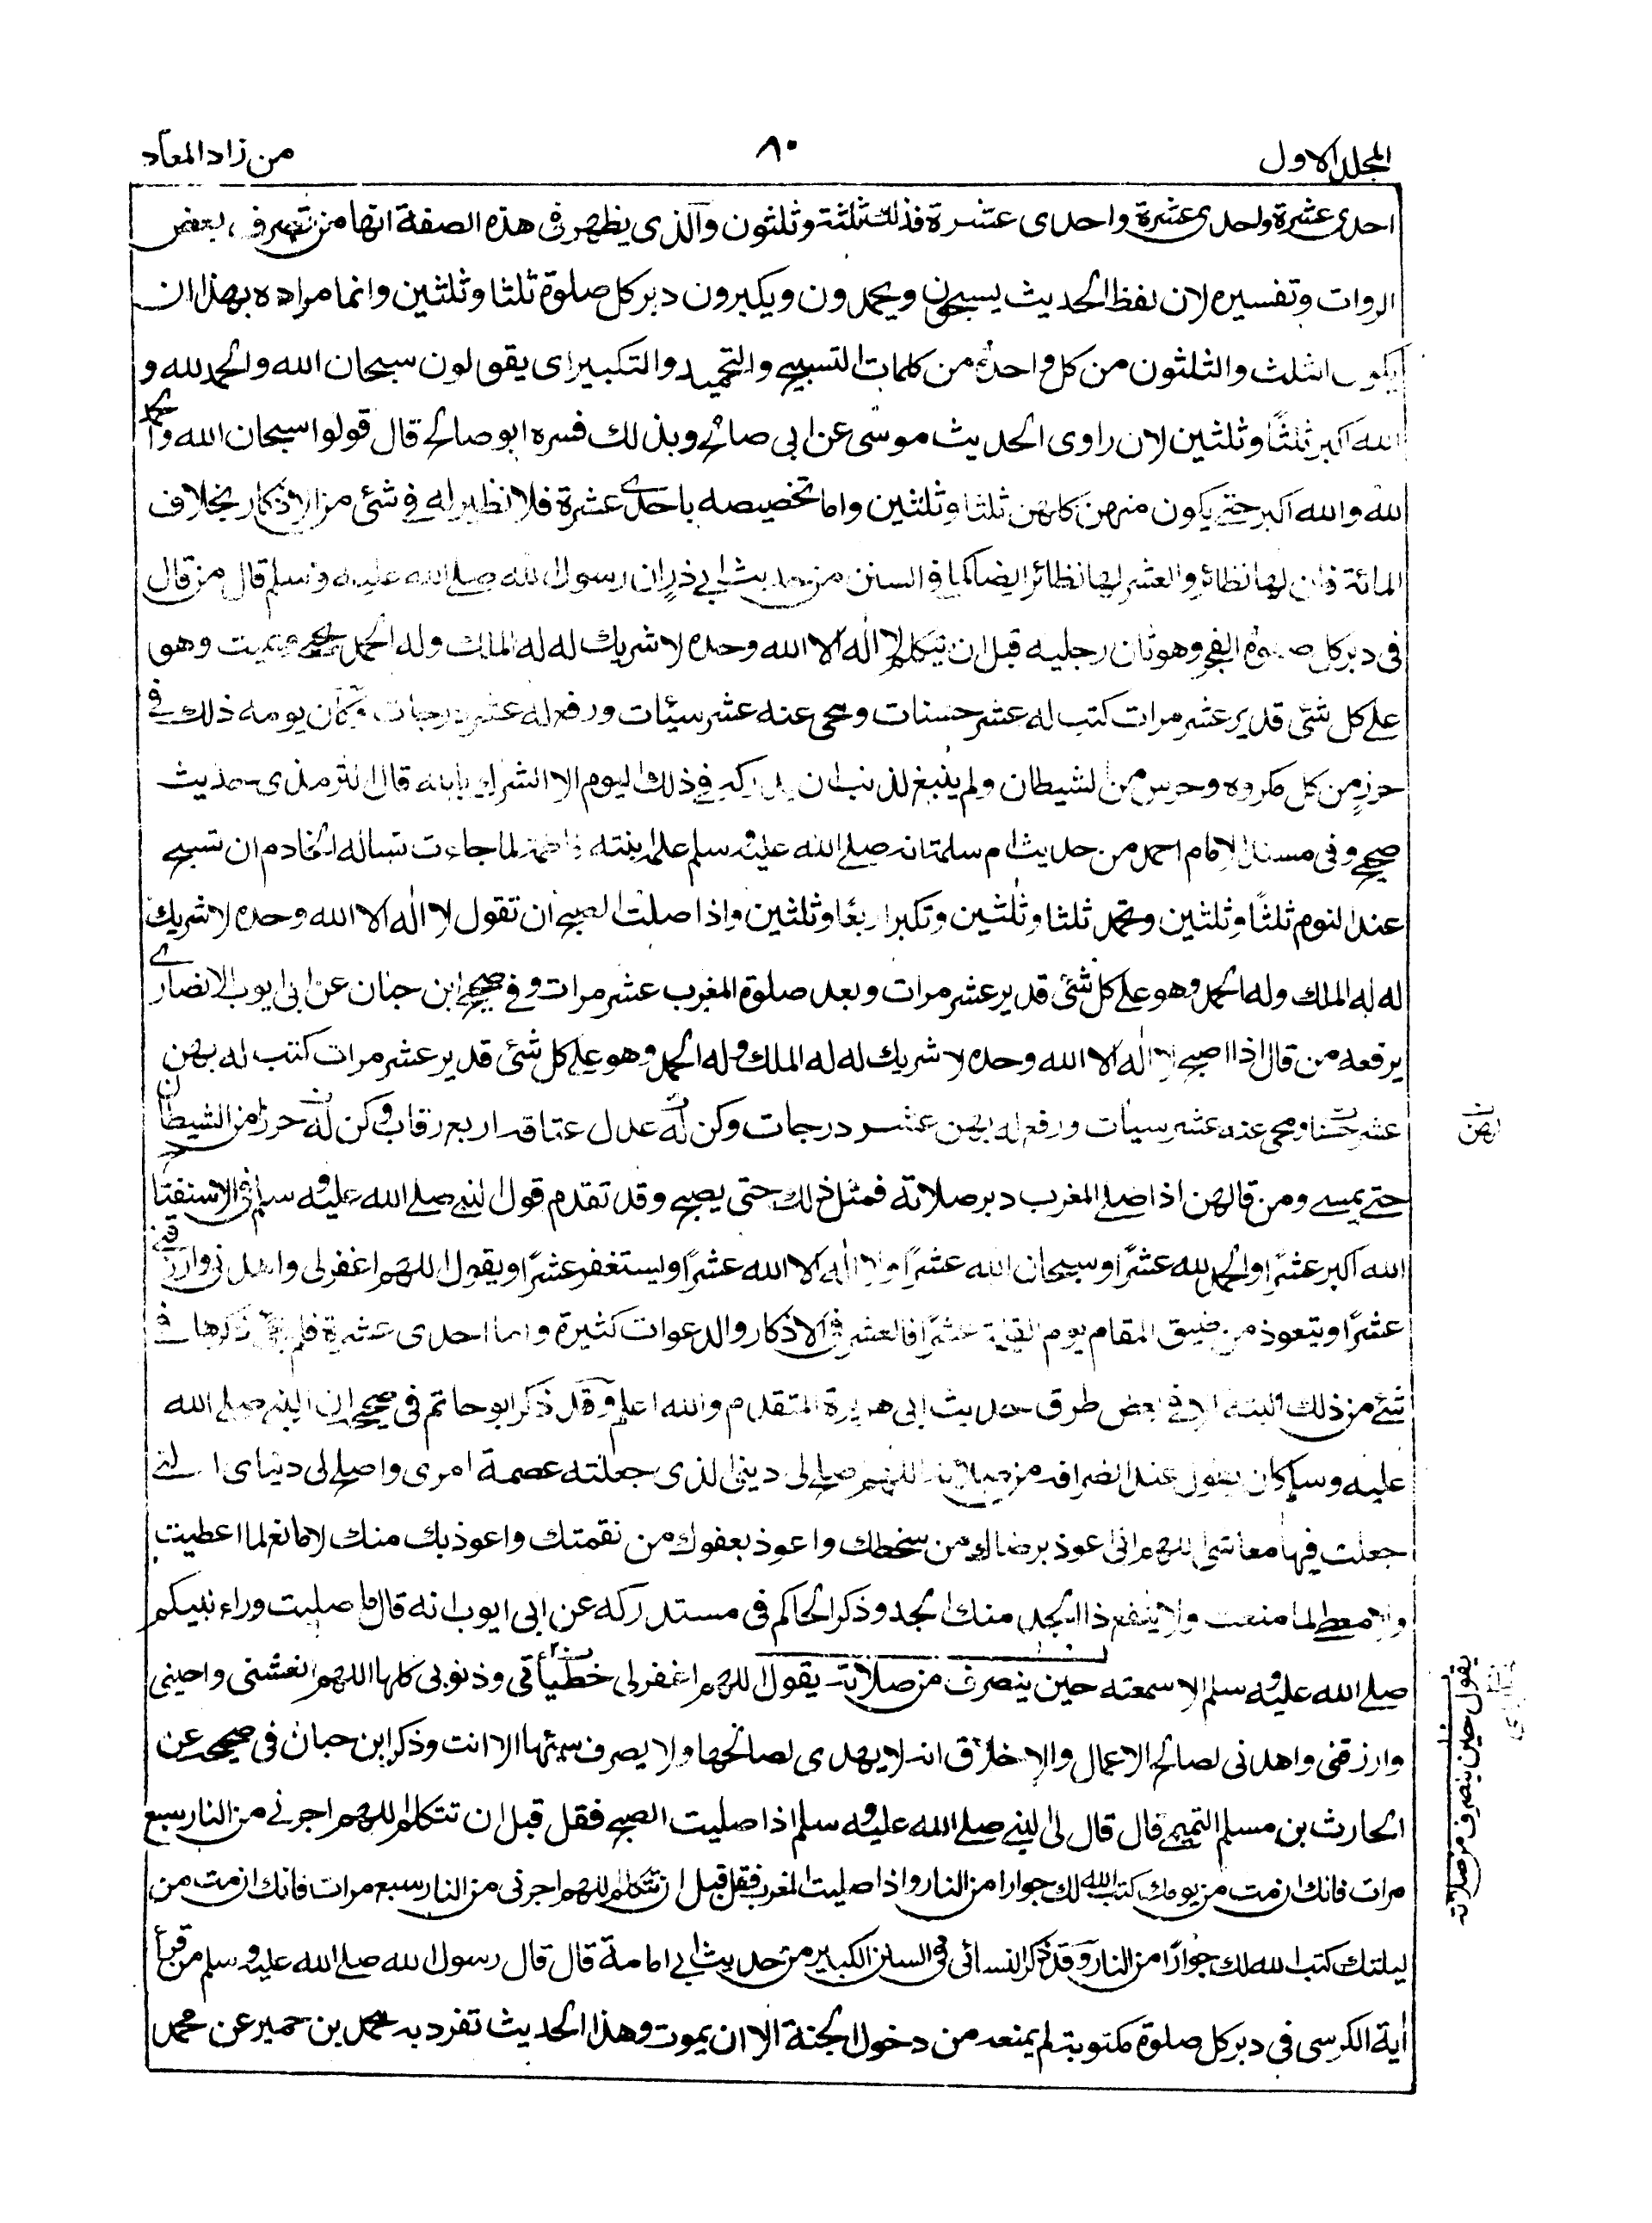 المجلد الاول
٨٠
من زاد المعاد
احدى عشرة واحدى عشرة واحدى عشرة فذلك ثلثة وثلثون والذى يظهر فى هذه الصفة انها من تصرف بعض
الروات وتفسيره لان لفظ الحديث يسبحون ويحمدون ويكبرون دبر كل صلوة ثلثا وثلثين وانما مراده بهذا ان
يكون الثلث والثلثون من كل واحدة من كلمات التسبيح والتحميد والتكبير اى يقولون سبحان الله والحمد لله و
الله اكبر ثلثًا وثلثين لان راوى الحديث موسى عن ابى صالح وبذلك فسره ابو صالح قال قولوا سبحان الله والحمد
لله والله اكبر حتى يكون منهن كلهن ثلثا وثلثين واما تخصيصه باحدى عشرة فلا نظير له فى شئ من الاذكار بخلاف
المائة فان لها نظائر والعشر لها نظائر ايضا كما فى السنن من حديث ابى ذر ان رسول الله صلى الله عليه وسلم قال من قال
فى دبر كل صلوة الفجر وهو ثان رجليه قبل ان يتكلم لا اله الا الله وحده لا شريك له له الملك وله الحمد يحيى ويميت وهو
على كل شئ قدير عشر مرات كتب له عشر حسنات ومحى عنه عشر سيئات ورفع له عشر درجات وكان يومه ذلك فى
حرز من كل مكروه وحرس من الشيطان ولم ينبغ لذنب ان يدركه فى ذلك اليوم الا الشرك بالله قال الترمذى حديث
صحيح وفى مسند الامام احمد من حديث ام سلمة انه صلى الله عليه وسلم علم ابنته فاطمة لما جاءت تسأله الخادم ان تسبح
عند النوم ثلثًا وثلثين وتحمد ثلثا وثلثين وتكبر اربعًا وثلثين واذا صلت الصبح ان تقول لا اله الا الله وحده لا شريك
له له الملك وله الحمد وهو على كل شئ قدير عشر مرات وبعد صلوة المغرب عشر مرات وفى صحيح ابن حبان عن ابى ايوب الانصارى
يرفعه من قال اذا اصبح لا اله الا الله وحده لا شريك له له الملك وله الحمد وهو على كل شئ قدير عشر مرات كتب له بهن
عشر حسنات ومحى عنه عشر سيأت ورفع له بهن عشر درجات وكن له عدل عتاقة اربع رقاب وكن له حرزًا من الشيطان
حتى يمسى ومن قالهن اذا صلى المغرب دبر صلاته فمثل ذلك حتى يصبح وقد تقدم قول النبى صلى الله عليه وسلم فى الاستفتاح
الله اكبر عشرًا والحمد لله عشرًا وسبحان الله عشرًا ولا اله الا الله عشرًا ويستغفر عشرًا ويقول اللهم اغفر لى واهدنى وارزقنى
عشرًا ويتعوذ من ضيق المقام يوم القيمة عشرًا فالعشر فى الاذكار والدعوات كثيرة واما احدى عشرة فلم يجئ ذكرها فى
شئ من ذلك البتة الا فى بعض طرق حديث ابى هريرة المتقدم والله اعلم وقد ذكر ابو حاتم فى صحيحه ان النبى صلى الله
عليه وسلم كان يقول عند انصرافه من صلاته اللهم اصلح لى دينى الذى جعلته عصمة امرى واصلح لى دنياى التى
جعلت فيها معاشى اللهم انى اعوذ برضاك من سخطك واعوذ بعفوك من نقمتك واعوذ بك منك لا مانع لما اعطيت
ولا معطى لما منعت ولا ينفع ذا الجد منك الجد وذكر الحاكم فى مستدركه عن ابى ايوب انه قال ما صليت وراء نبيكم
صلى الله عليه وسلم الا سمعته حين ينصرف من صلاته يقول اللهم اغفر لى خطيأتى وذنوبى كلها اللهم انعشنى واحينى
وارزقنى واهدنى لصالح الاعمال والاخلاق انه لا يهدى لصالحها ولا يصرف سيئها الا انت وذكر ابن حبان فى صحيحه عن
الحارث بن مسلم التميمى قال قال لى النبى صلى الله عليه وسلم اذا صليت الصبح فقل قبل ان تتكلم اللهم اجرنى من النار سبع
مرات فانك ان مت من يومك كتب الله لك جوارا من النار واذا صليت المغرب فقل قبل ان تتكلم اللهم اجرنى من النار سبع مرات فانك ان مت من
ليلتك كتب الله لك جوارًا من النار وقد ذكر النسائى فى السنن الكبير من حديث ابى امامة قال قال رسول الله صلى الله عليه وسلم من قرأ
أية الكرسى فى دبر كل صلوة مكتوبة لم يمنعه من دخول الجنة الا ان يموت وهذا الحديث تفرد به محمد بن حمير عن محمد
بهن
يقول حين ينصرف من صلاته